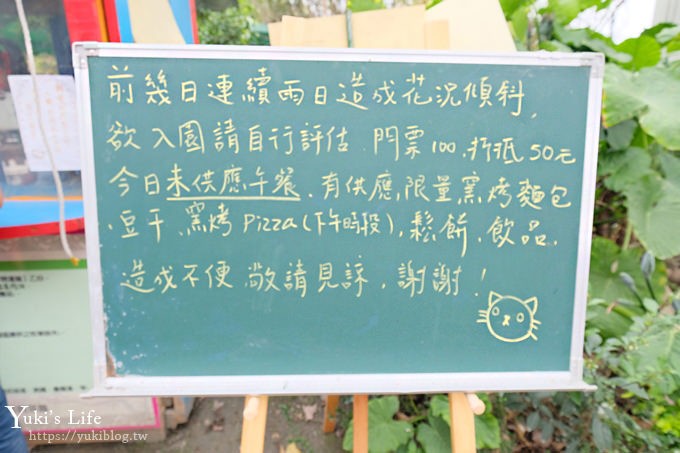 前幾日連續雨日造成花況傾斜,
欲入園請自行評估 門票100.折抵50元
今日未供應午餐.有供應,限量,窯烤麵包
.豆干、窯烤Pizza(下午時段),鬆餅、飲品.
造成不便 敬請見諒,謝謝!
Yuki's Life
https://yukiblog.tw